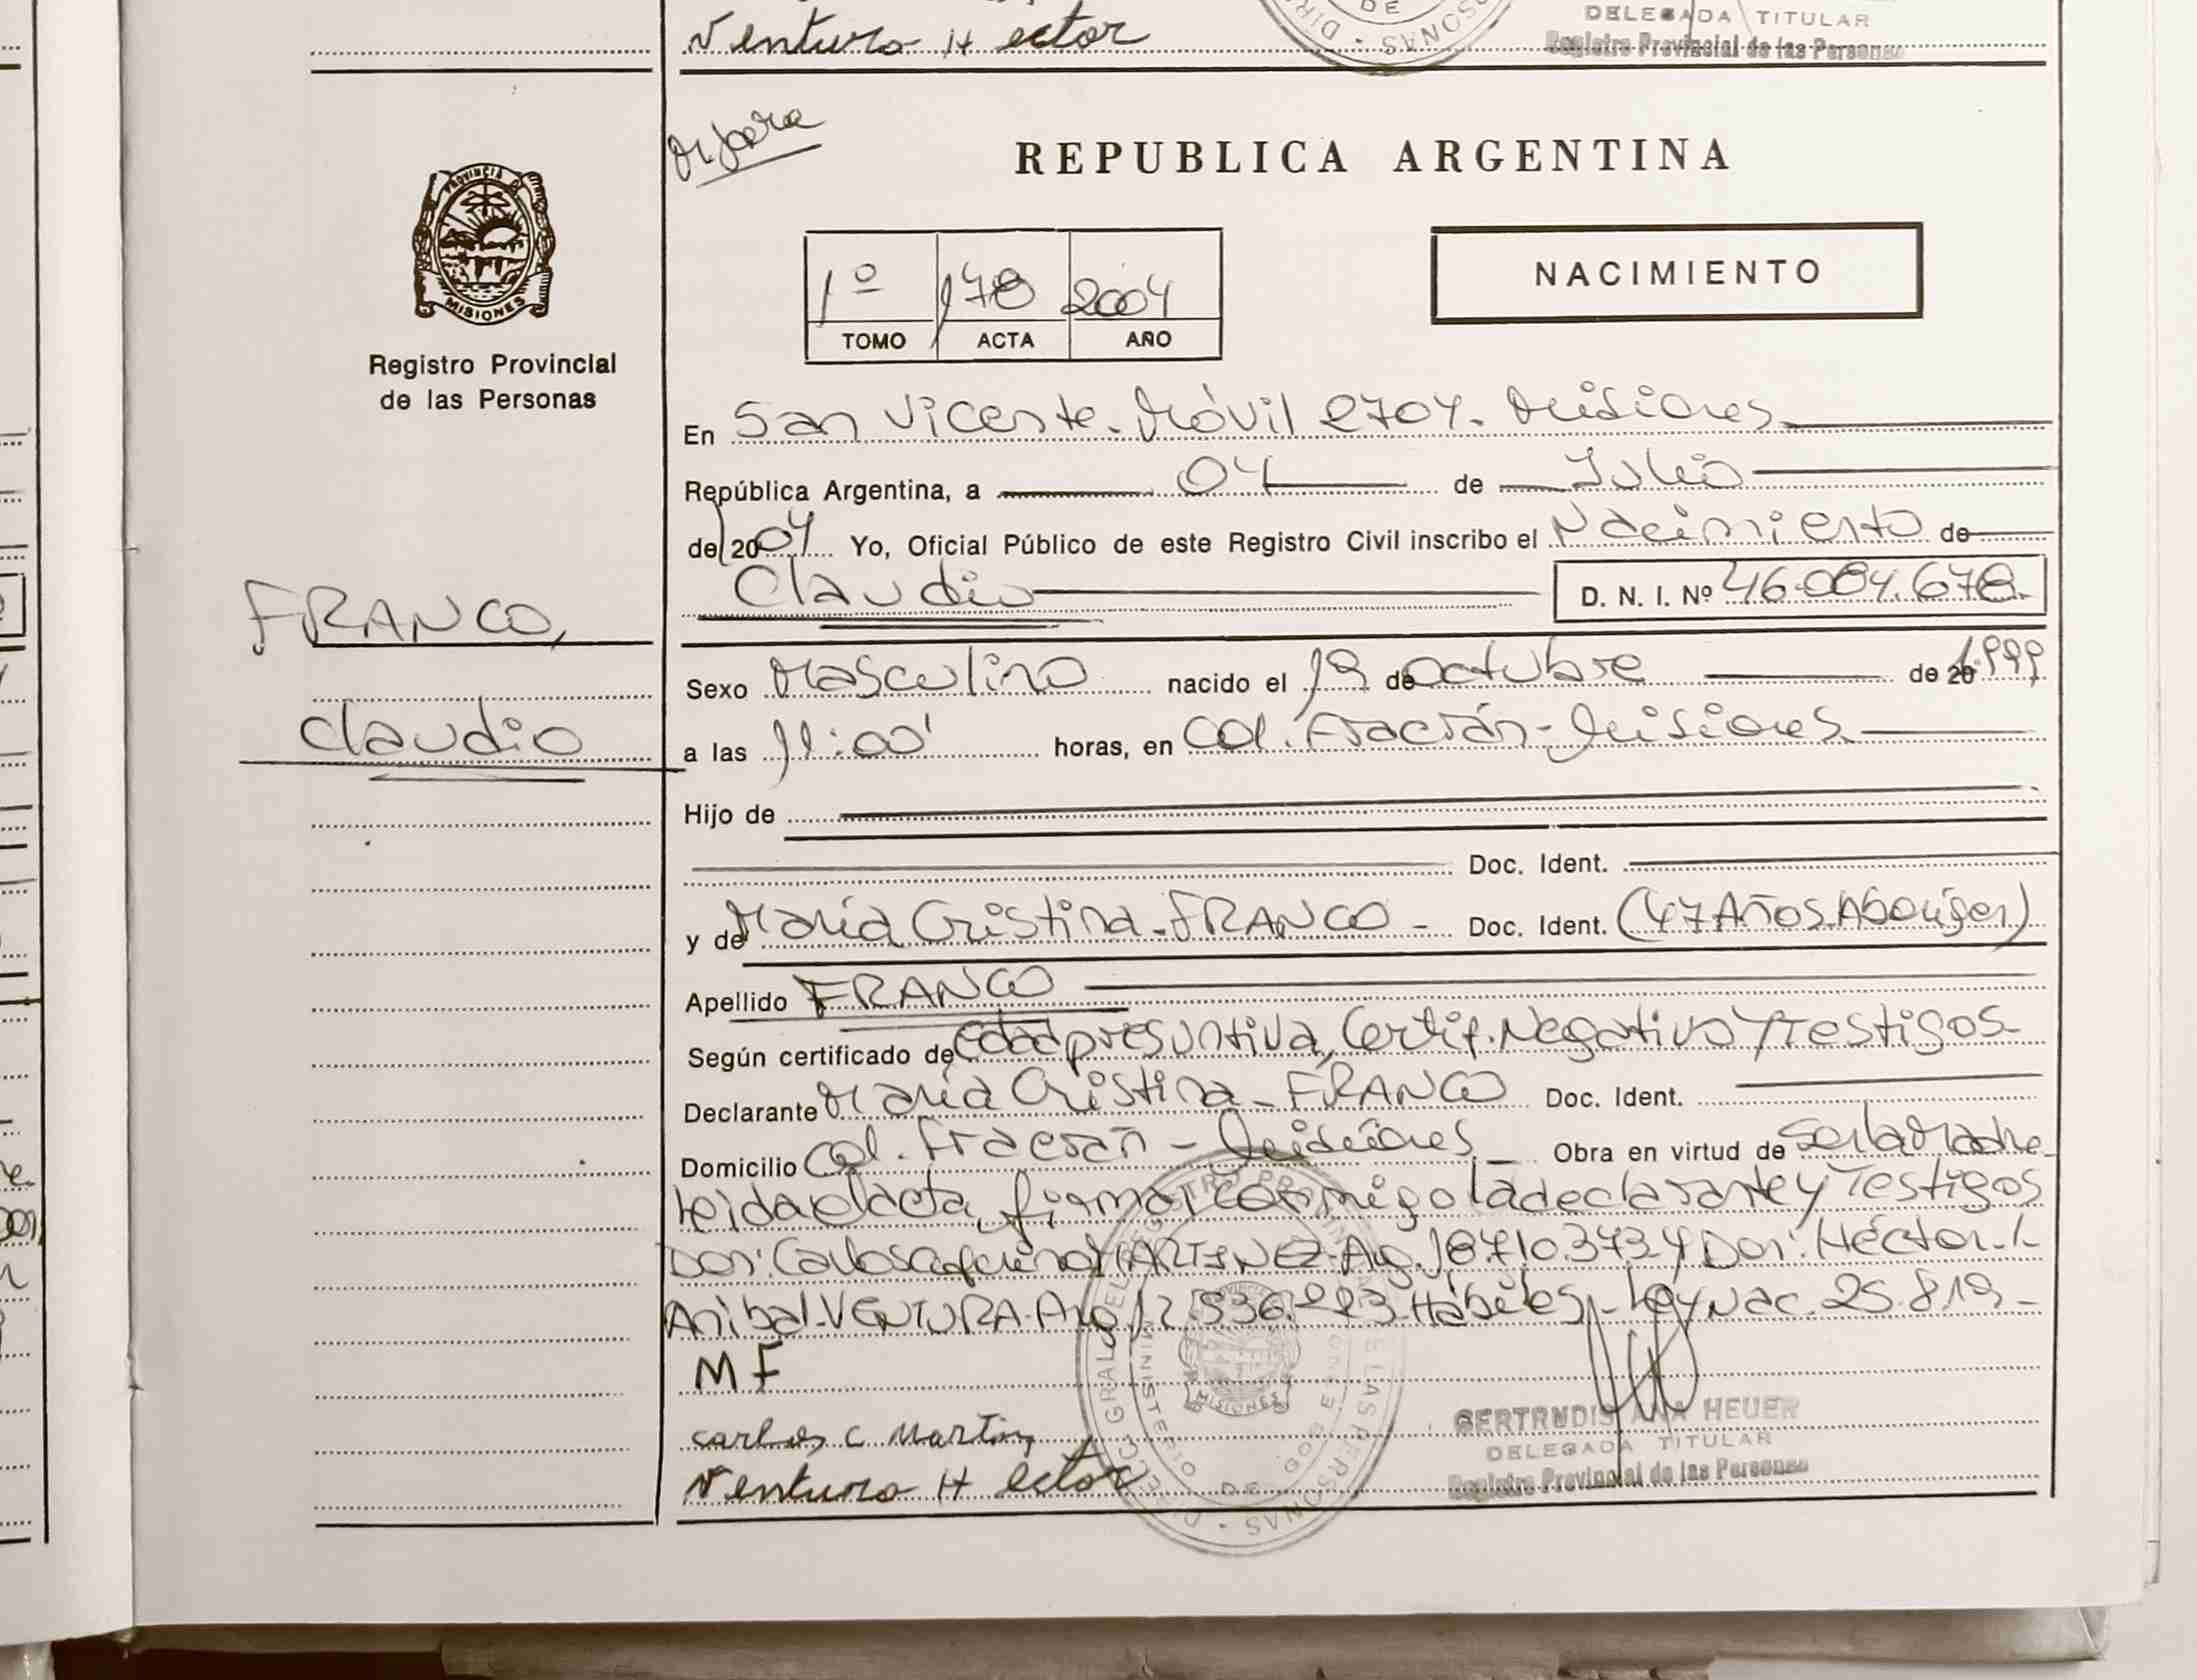 Ventura Hector
DELEGADA TITULAR
Registro Provincial de las Personas
REPUBLICA ARGENTINA
PROVINCIA DE
MISIONES
1º 178 2004
TOMO ACTA AÑO
NACIMIENTO
Registro Provincial
de las Personas
En San Vicente. Móvil 2704. Misiones
República Argentina, a 04 de Julio
de 2004 Yo, Oficial Público de este Registro Civil inscribo el Nacimiento de
Claudio D. N. I. Nº 46.084.678.
FRANCO,
Claudio
Sexo Masculino nacido el 19 de Octubre de 20 1999
a las 11:00' horas, en Col. Fracrán - Misiones
Hijo de
Doc. Ident.
y de María Cristina - FRANCO - Doc. Ident. (47 Años. Aborigen)
Apellido FRANCO
Según certificado de Edad presuntiva, Certif. Negativo y Testigos-
Declarante María Cristina - FRANCO Doc. Ident.
Domicilio Col. Fracrán - Misiones Obra en virtud de Ser la Madre
Leida el acta, firman conmigo la declarante y Testigos
Don: Carlos MARTINEZ. Arg. 18.710.373. y Don: Héctor-
Anibal-VENTURA. Arg. 12.536.223. Hábiles - Ley Nac. 25.819-
MF
Carlos C Martin
Ventura Hector
GERTRUDIS ANA HEUER
DELEGADA TITULAR
Registro Provincial de las Personas